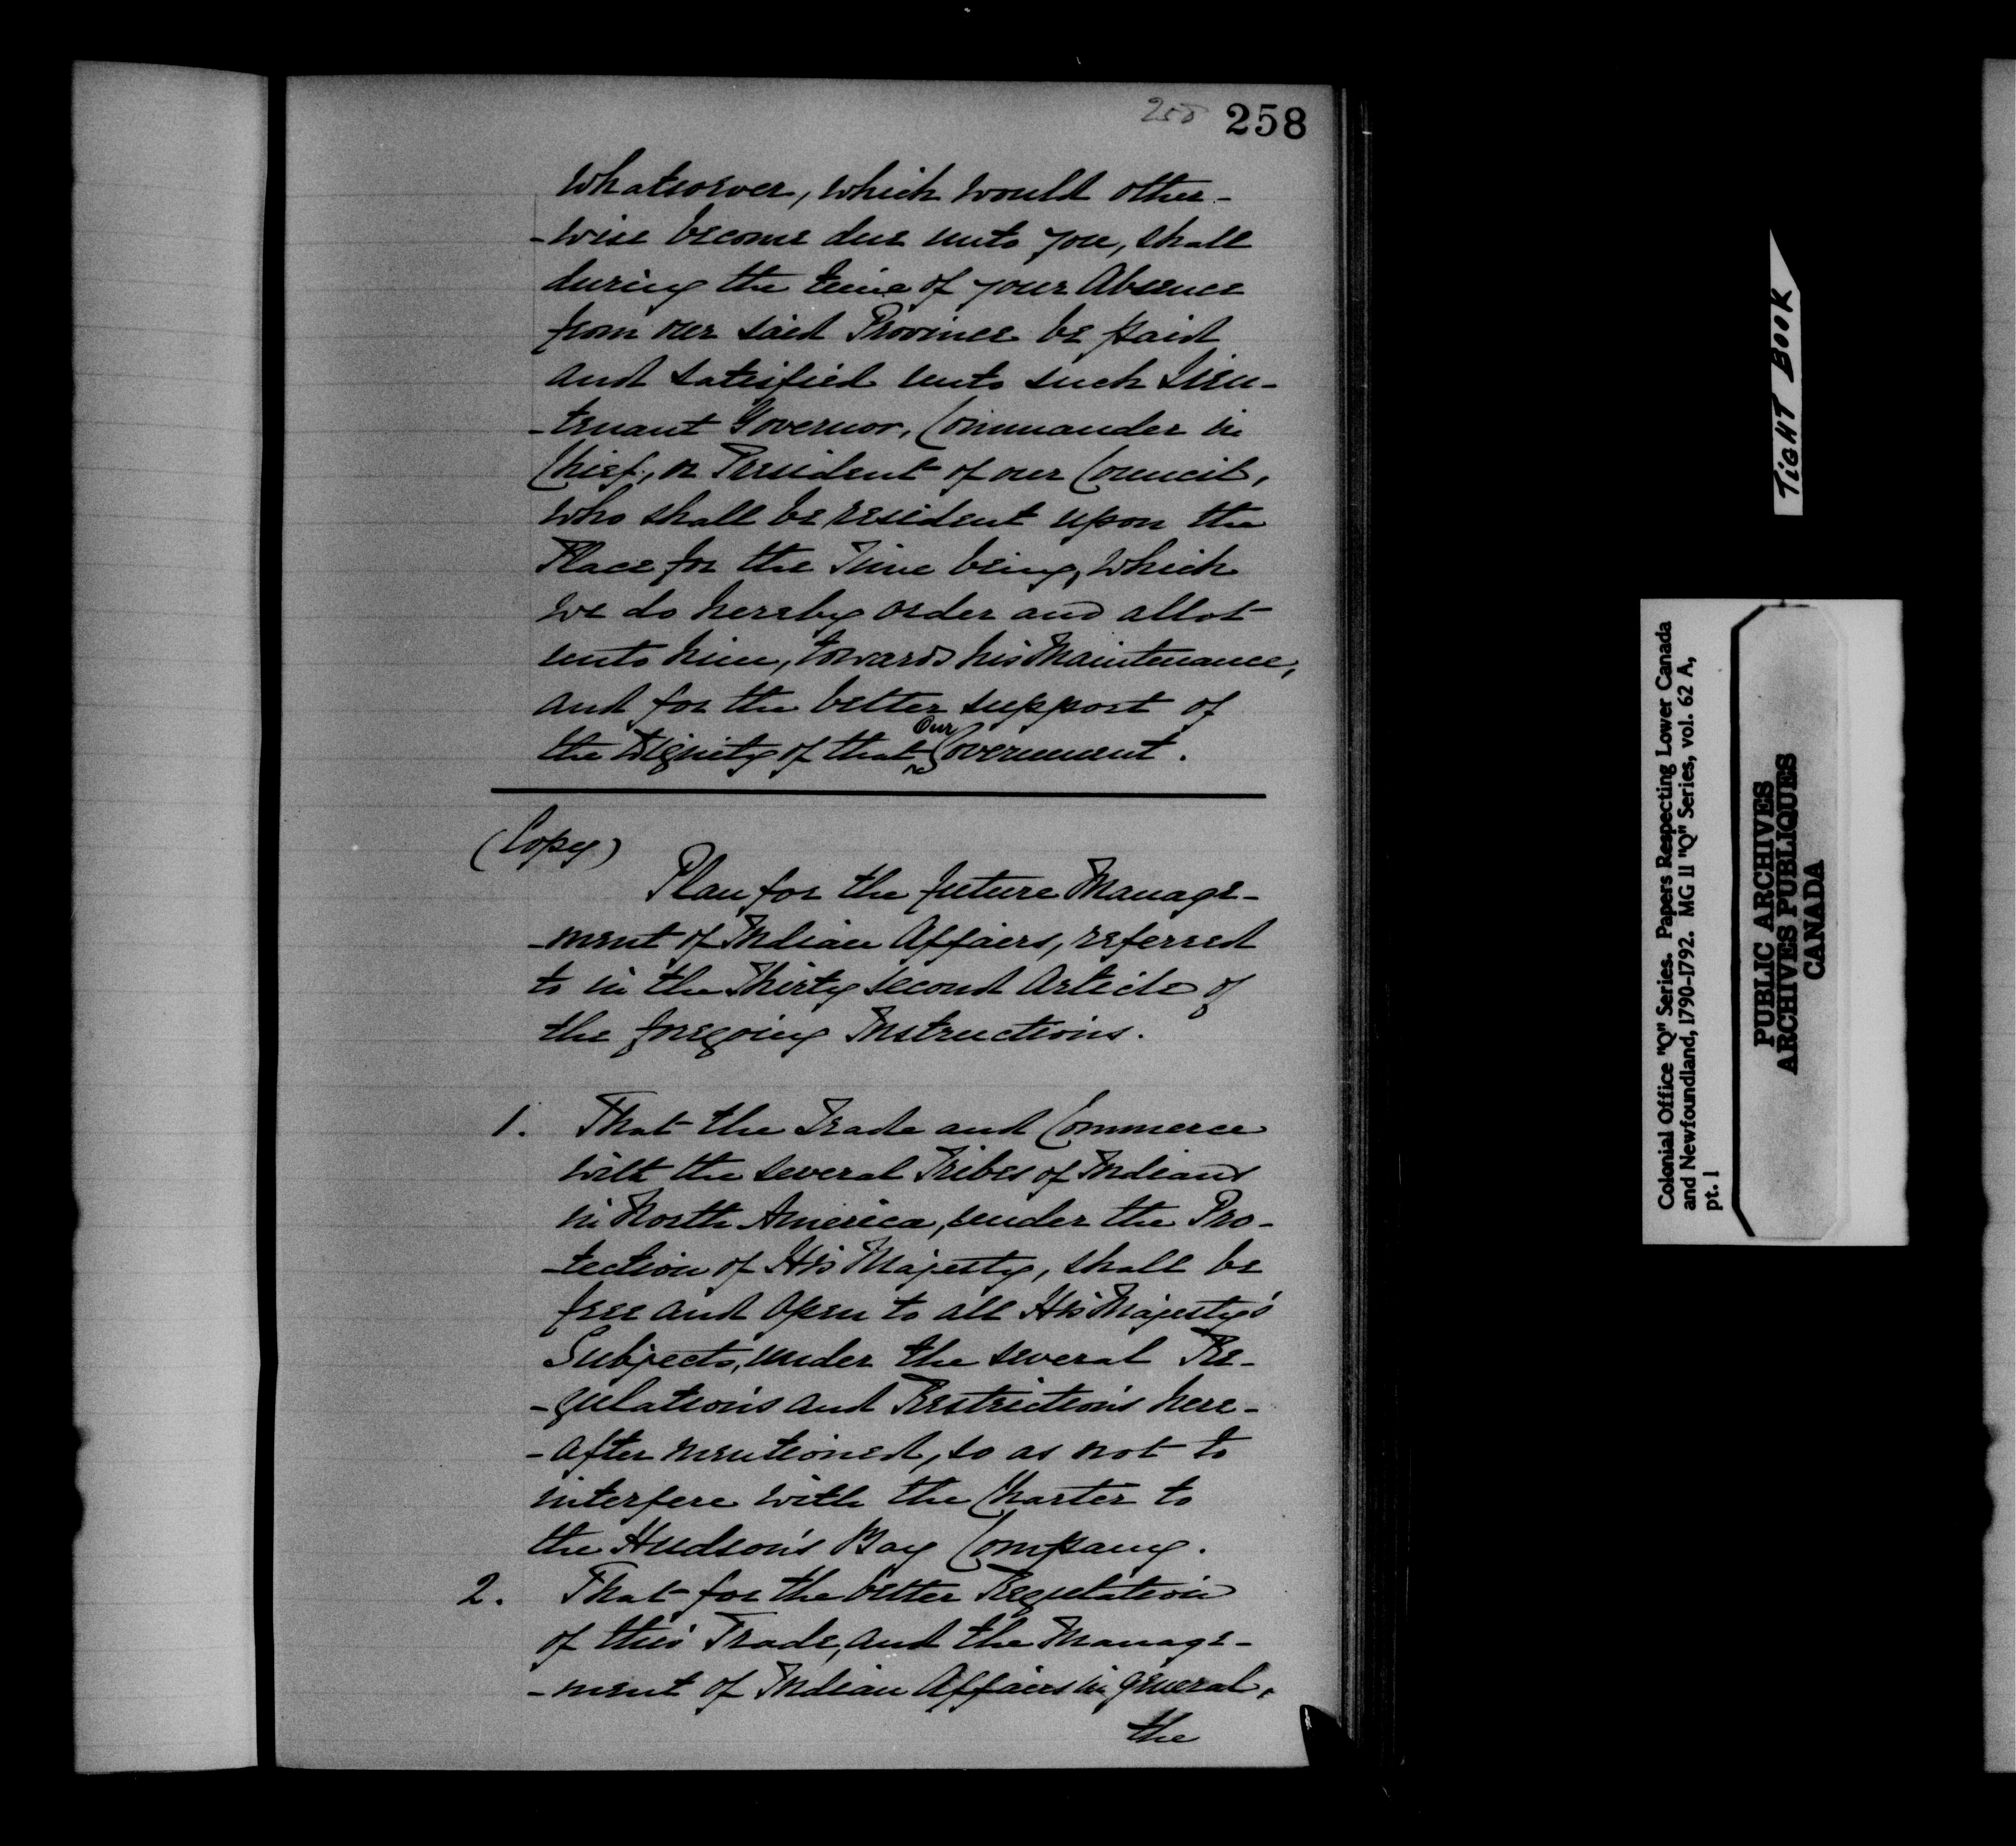 258 258
whatsoever, which would other-
-wise become due unto you, shall
during the time of your Absence
from our said Province be paid
and satisfied unto such Lieu-
-tenant Governor, Commander in
Chief, or President of our Council,
who shall be resident upon the
Place for the Time being, which
we do hereby order and allot
unto him, towards his Maintenance,
and for the better support of
the Dignity of that Our Government.
(Copy)
Plan for the future Manage-
-ment of Indian Affairs, referred
to in the Thirty second Article of
the foregoing Instructions.
1. That the Trade and Commerce
with the several Tribes of Indians
in North America, under the Pro-
-tection of His Majesty, shall be
free and open to all His Majesty's
Subjects, under the several Re-
-gulations and Restrictions here-
-after mentioned, so as not to
interfere with the Charter to
the Hudson's Bay Company.
2. That for the better Regulation
of this Trade, and the Manage-
-ment of Indian Affairs in general,
the
TIGHT BOOK
Colonial Office "Q" Series. Papers Respecting Lower Canada
and Newfoundland, 1790-1792. MG 11 "Q" Series, vol. 62 A,
pt. 1
PUBLIC ARCHIVES
ARCHIVES PUBLIQUES
CANADA